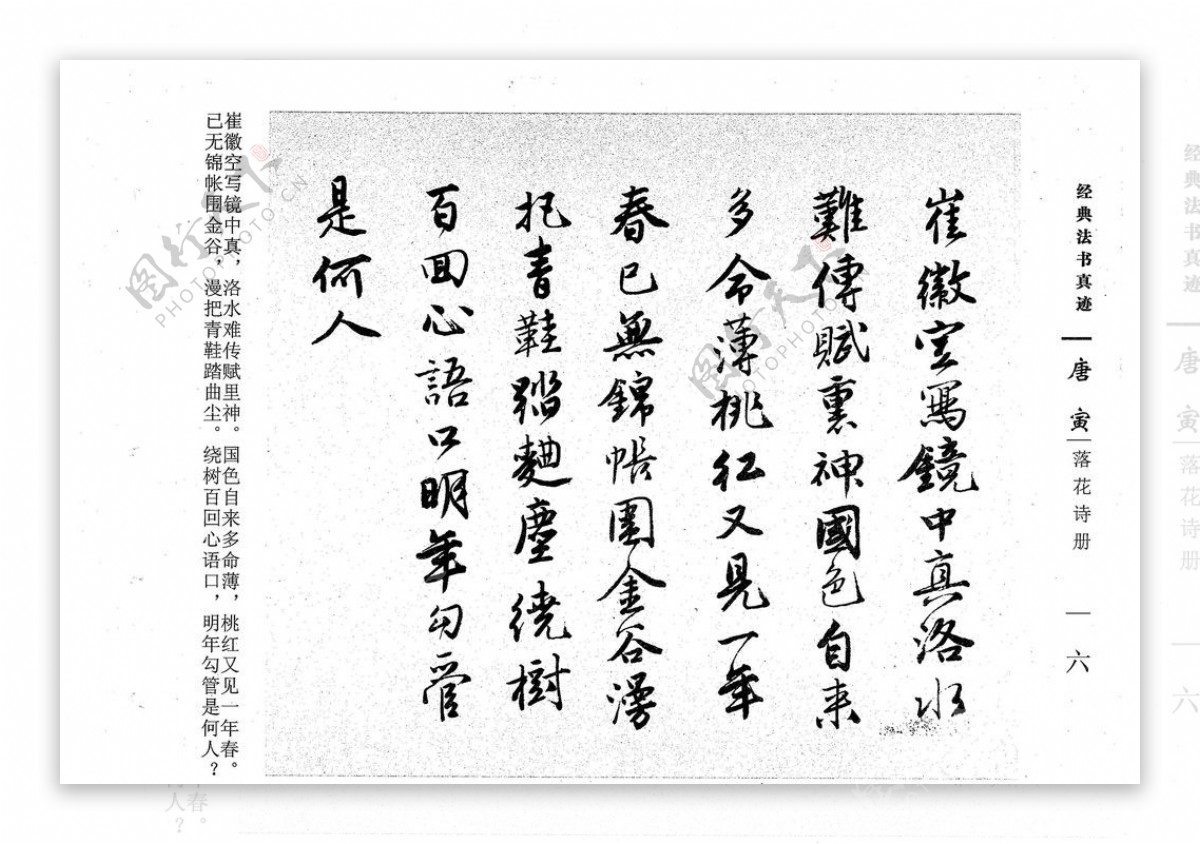 经典法书真迹
唐寅
落花诗册
一六
崔徽空写鏡中真洛水
難傳賦裏神國色自来
多命薄桃红又見一年
春已無錦帳圍金谷漫
把青鞋踏麯塵繞樹
百回心語口明年勾管
是何人
崔徽空写镜中真，洛水难传赋里神。国色自来多命薄，桃红又见一年春。
已无锦帐围金谷，漫把青鞋踏曲尘。绕树百回心语口，明年勾管是何人？
图行天下
PHOTOPHOTO.CN